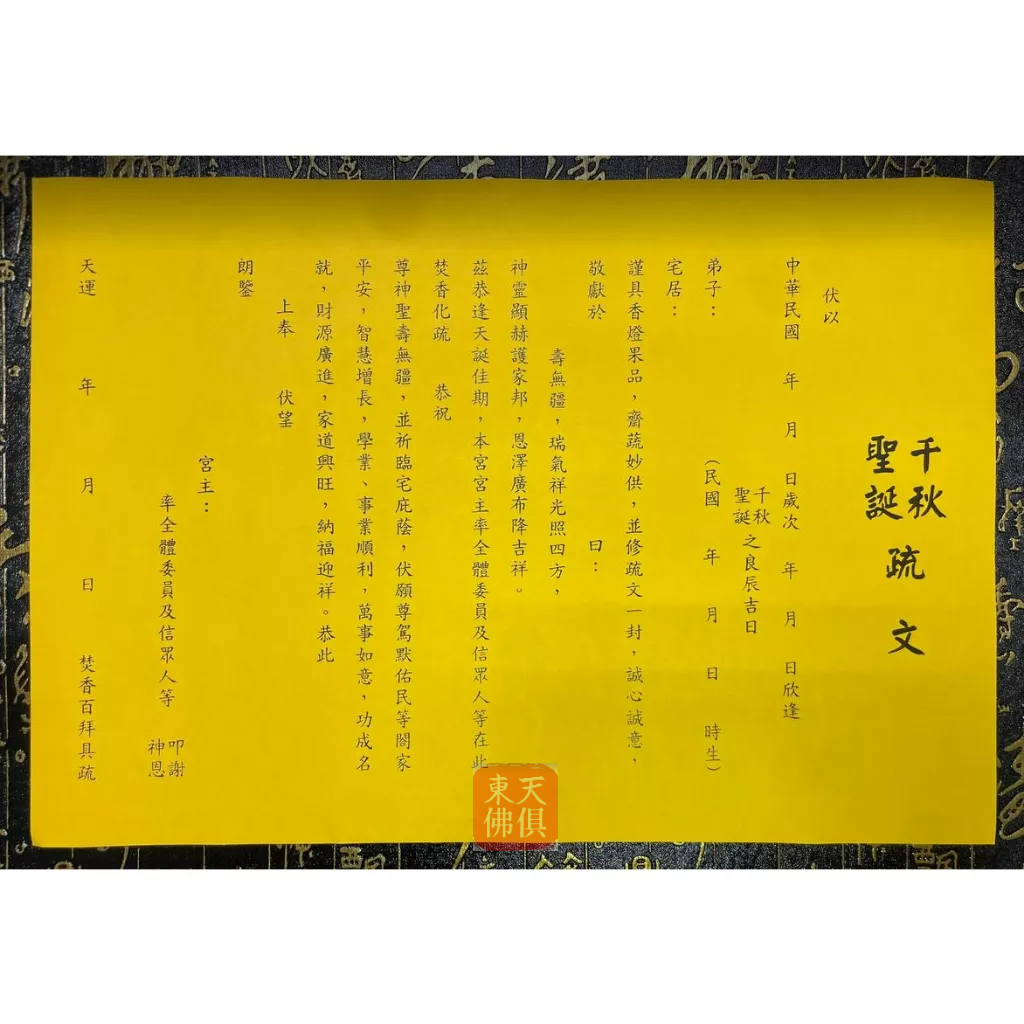 千秋
聖誕
疏文
伏以
中華民國 年 月 日歲次 年 月 日欣逢
千秋
聖誕
之良辰吉日
弟子： （民國 年 月 日 時生）
宅居：
謹具香燈果品，齋蔬妙供，並修疏文一封，誠心誠意，
敬獻於 曰：
壽無疆，瑞氣祥光照四方，
神靈顯赫護家邦，恩澤廣布降吉祥。
茲恭逢天誕佳期，本宮宮主率全體委員及信眾人等在此
焚香化疏 恭祝
尊神聖壽無疆，並祈臨宅庇蔭，伏願尊駕默佑民等閤家
平安，智慧增長，學業、事業順利，萬事如意，功成名
就，財源廣進，家道興旺，納福迎祥。恭此
上奉 伏望
朗鑒
宮主：
率全體委員及信眾人等
叩謝
神恩
天運 年 月 日 焚香百拜具疏
東天
佛俱